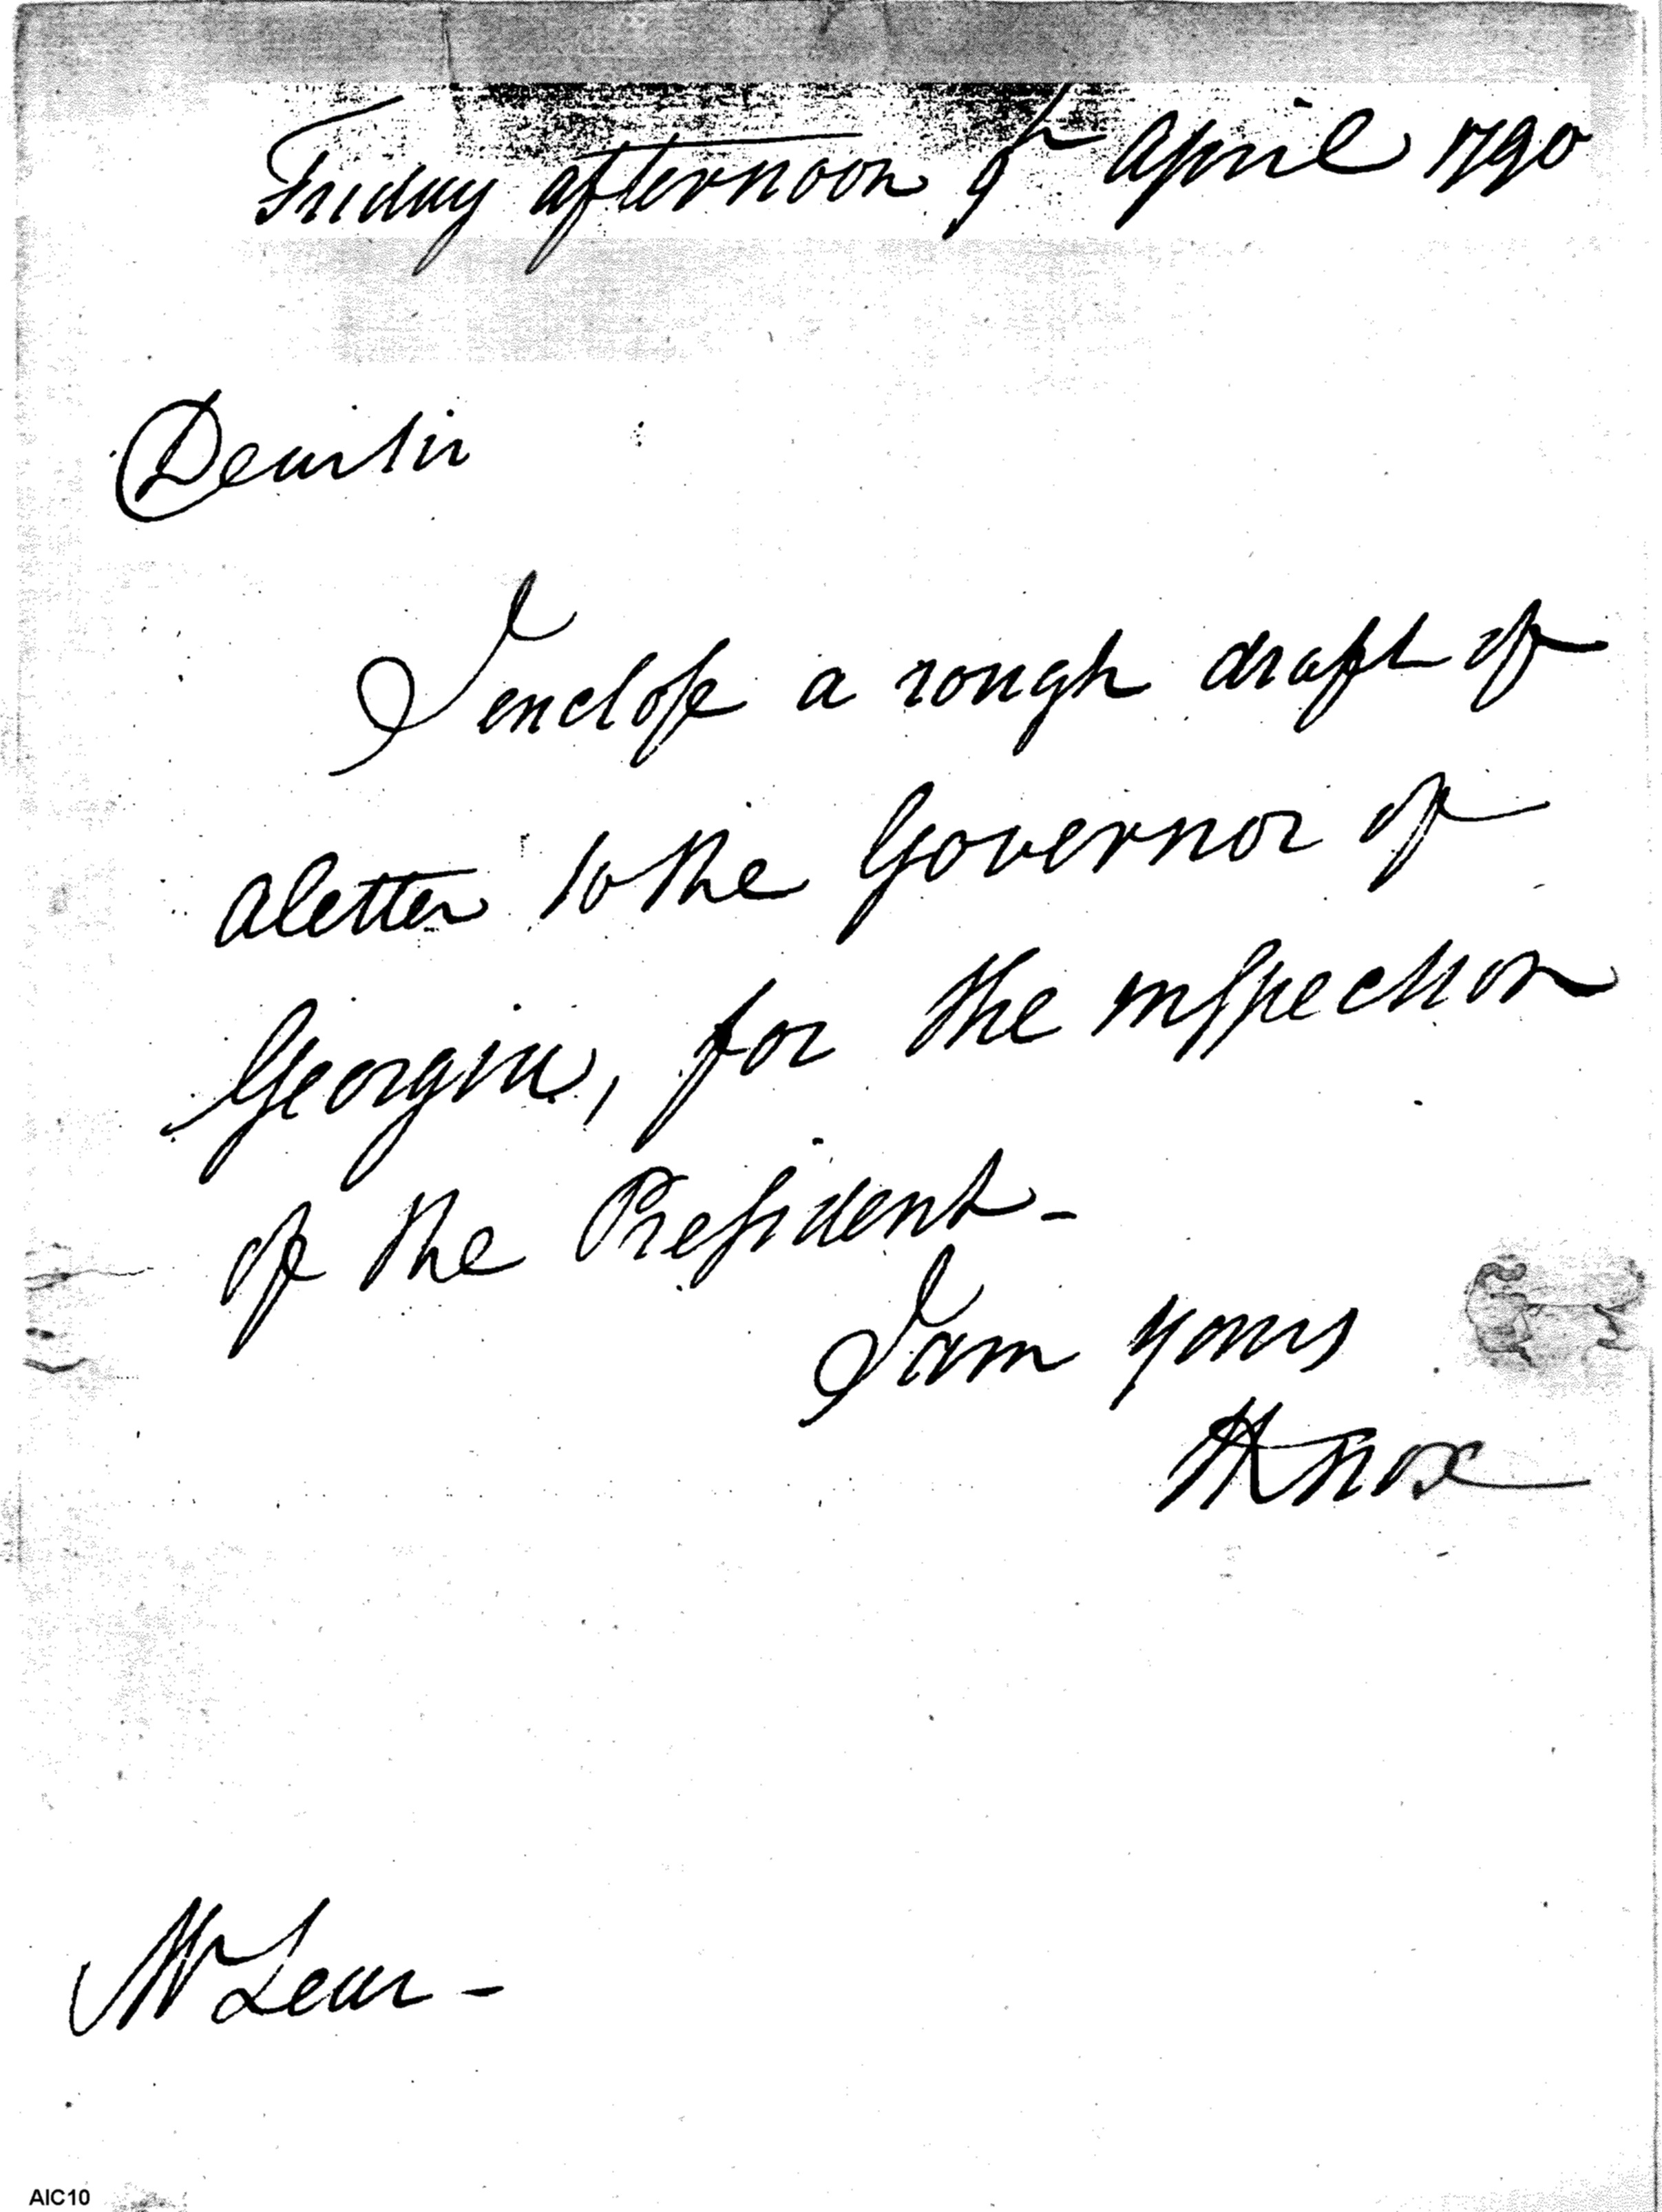 Friday afternoon 9th April 1790
Dear sir
I enclose a rough draft of
a letter to the Governor of
Georgia, for the inspection
of the President-
I am yours
HKnox
Mr Lear-
AIC10